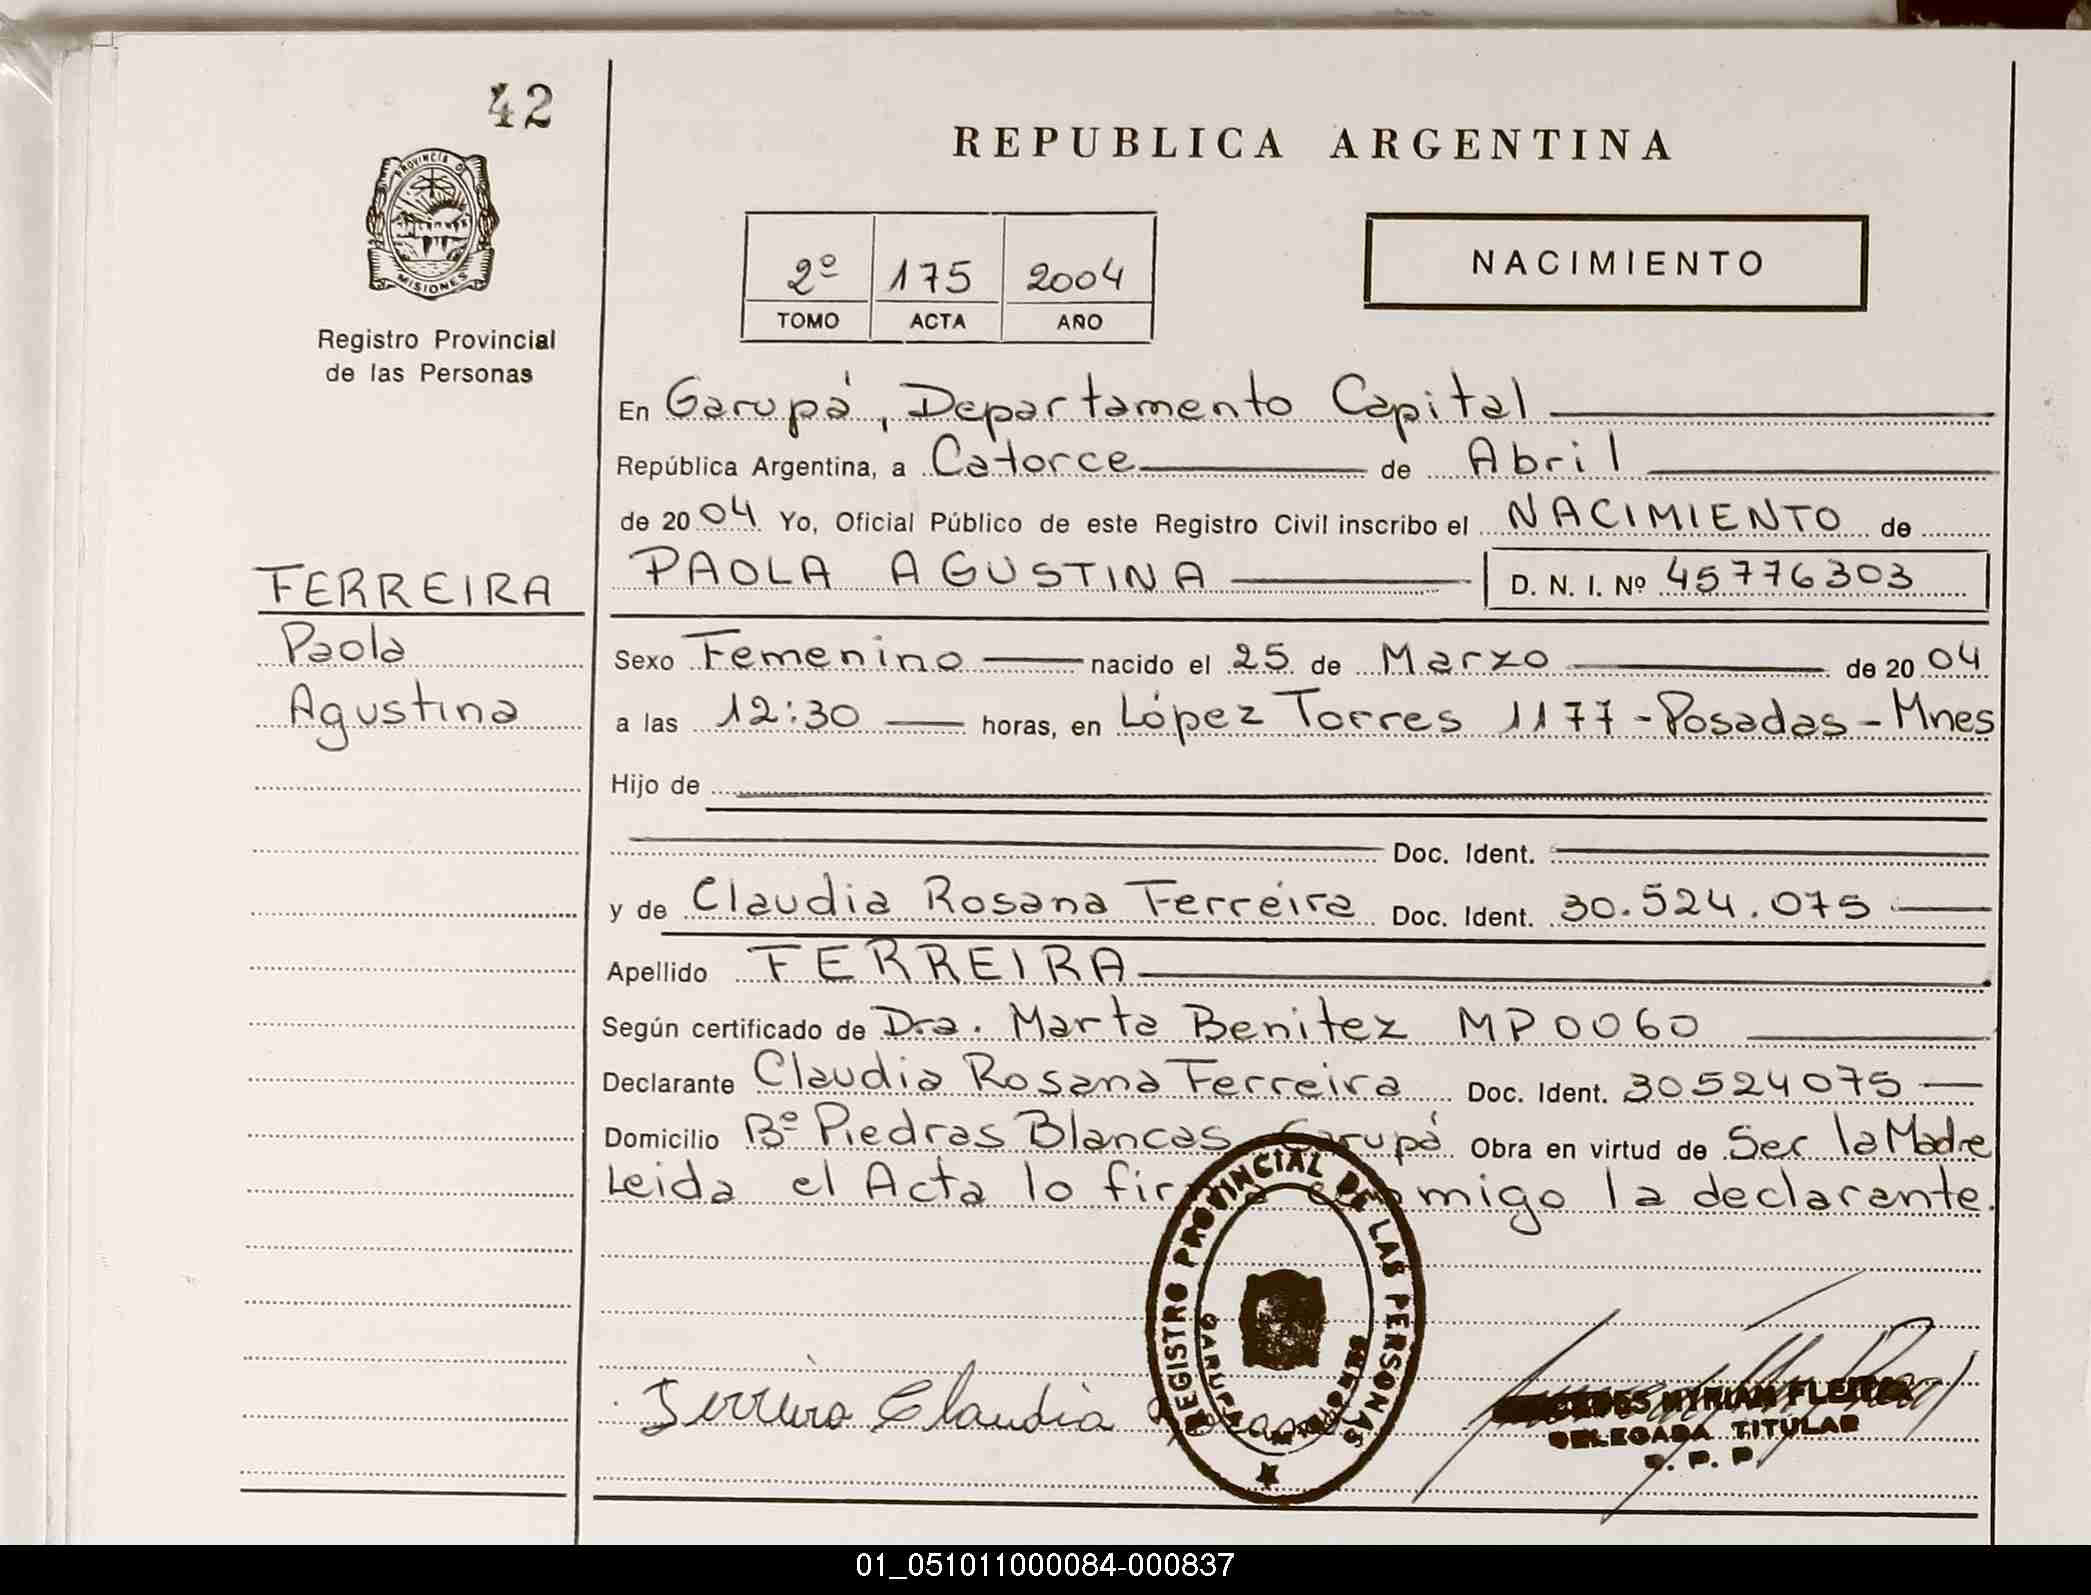 42
PROVINCIA DE
MISIONES
Registro Provincial
de las Personas
FERREIRA
Paola
Agustina
REPUBLICA ARGENTINA
2º 175 2004
TOMO ACTA AÑO
NACIMIENTO
En Garupá, Departamento Capital
República Argentina, a Catorce de Abril
de 2004 Yo, Oficial Público de este Registro Civil inscribo el NACIMIENTO de
PAOLA AGUSTINA D. N. I. Nº 45776303
Sexo Femenino nacido el 25 de Marzo de 2004
a las 12:30 horas, en López Torres 1177 - Posadas - Mnes
Hijo de
Doc. Ident.
y de Claudia Rosana Ferreira Doc. Ident. 30.524.075
Apellido FERREIRA
Según certificado de Dra. Marta Benitez MP0060
Declarante Claudia Rosana Ferreira Doc. Ident. 30524075
Domicilio Bº Piedras Blancas Garupá Obra en virtud de Ser la Madre
Leida el Acta lo firma conmigo la declarante.
REGISTRO PROVINCIAL DE LAS PERSONAS
GARUPA
Ferreira Claudia
MYRIAM
DELEGADA TITULAR
R. P. P.
01_051011000084-000837